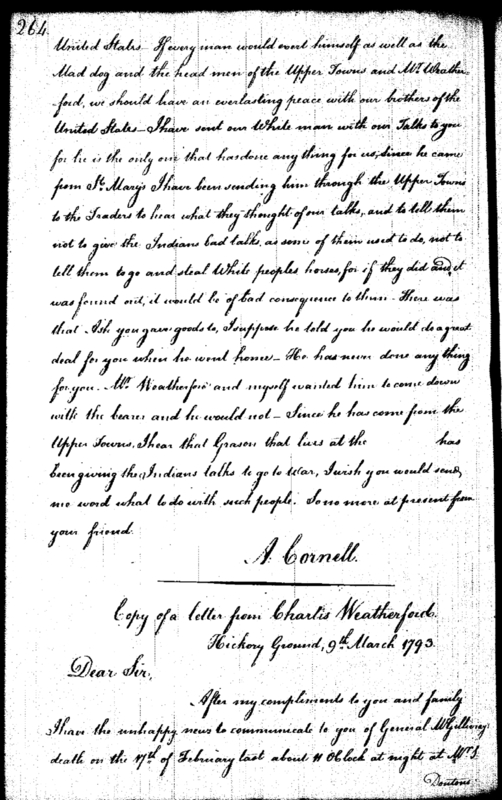 264
United States_ If every man would exert himself as well as the
Mad dog and the head men of the Upper Towns and Mr. Weather
ford, we should have an everlasting peace with our brothers of the
United States_ I have sent our White man with our Talks to you
for he is the only one that has done any thing for us, since he came
from St. Mary's I have been sending him through the Upper Towns
to the Traders to hear what they thought of our talks, and to tell them
not to give the Indians bad talks, as some of them used to do, not to
tell them to go and steal White peoples horses, for if they did and it
was found out, it would be of bad consequence to them_ There was
that Ash you gave goods to, I suppose he told you he would do a great
deal for you when he went home_ He has never done any thing
for you_ Mr. Weatherford and myself wanted him to come down
with the bearer and he would not_ Since he has come from the
Upper Towns, I hear that Grason that lives at the has
been giving the Indians talks to go to War, I wish you would send
me word what to do with such people. So no more at present from
your friend
A. Cornell.
Copy of a letter from Charles Weatherford.
Hickory Ground, 9th March 1793.
Dear Sir,
After my compliments to you and family
I have the unhappy news to communicate to you of General McGillivrays
death on the 17th of February last about 11 OClock at night at Mr.
Pantons